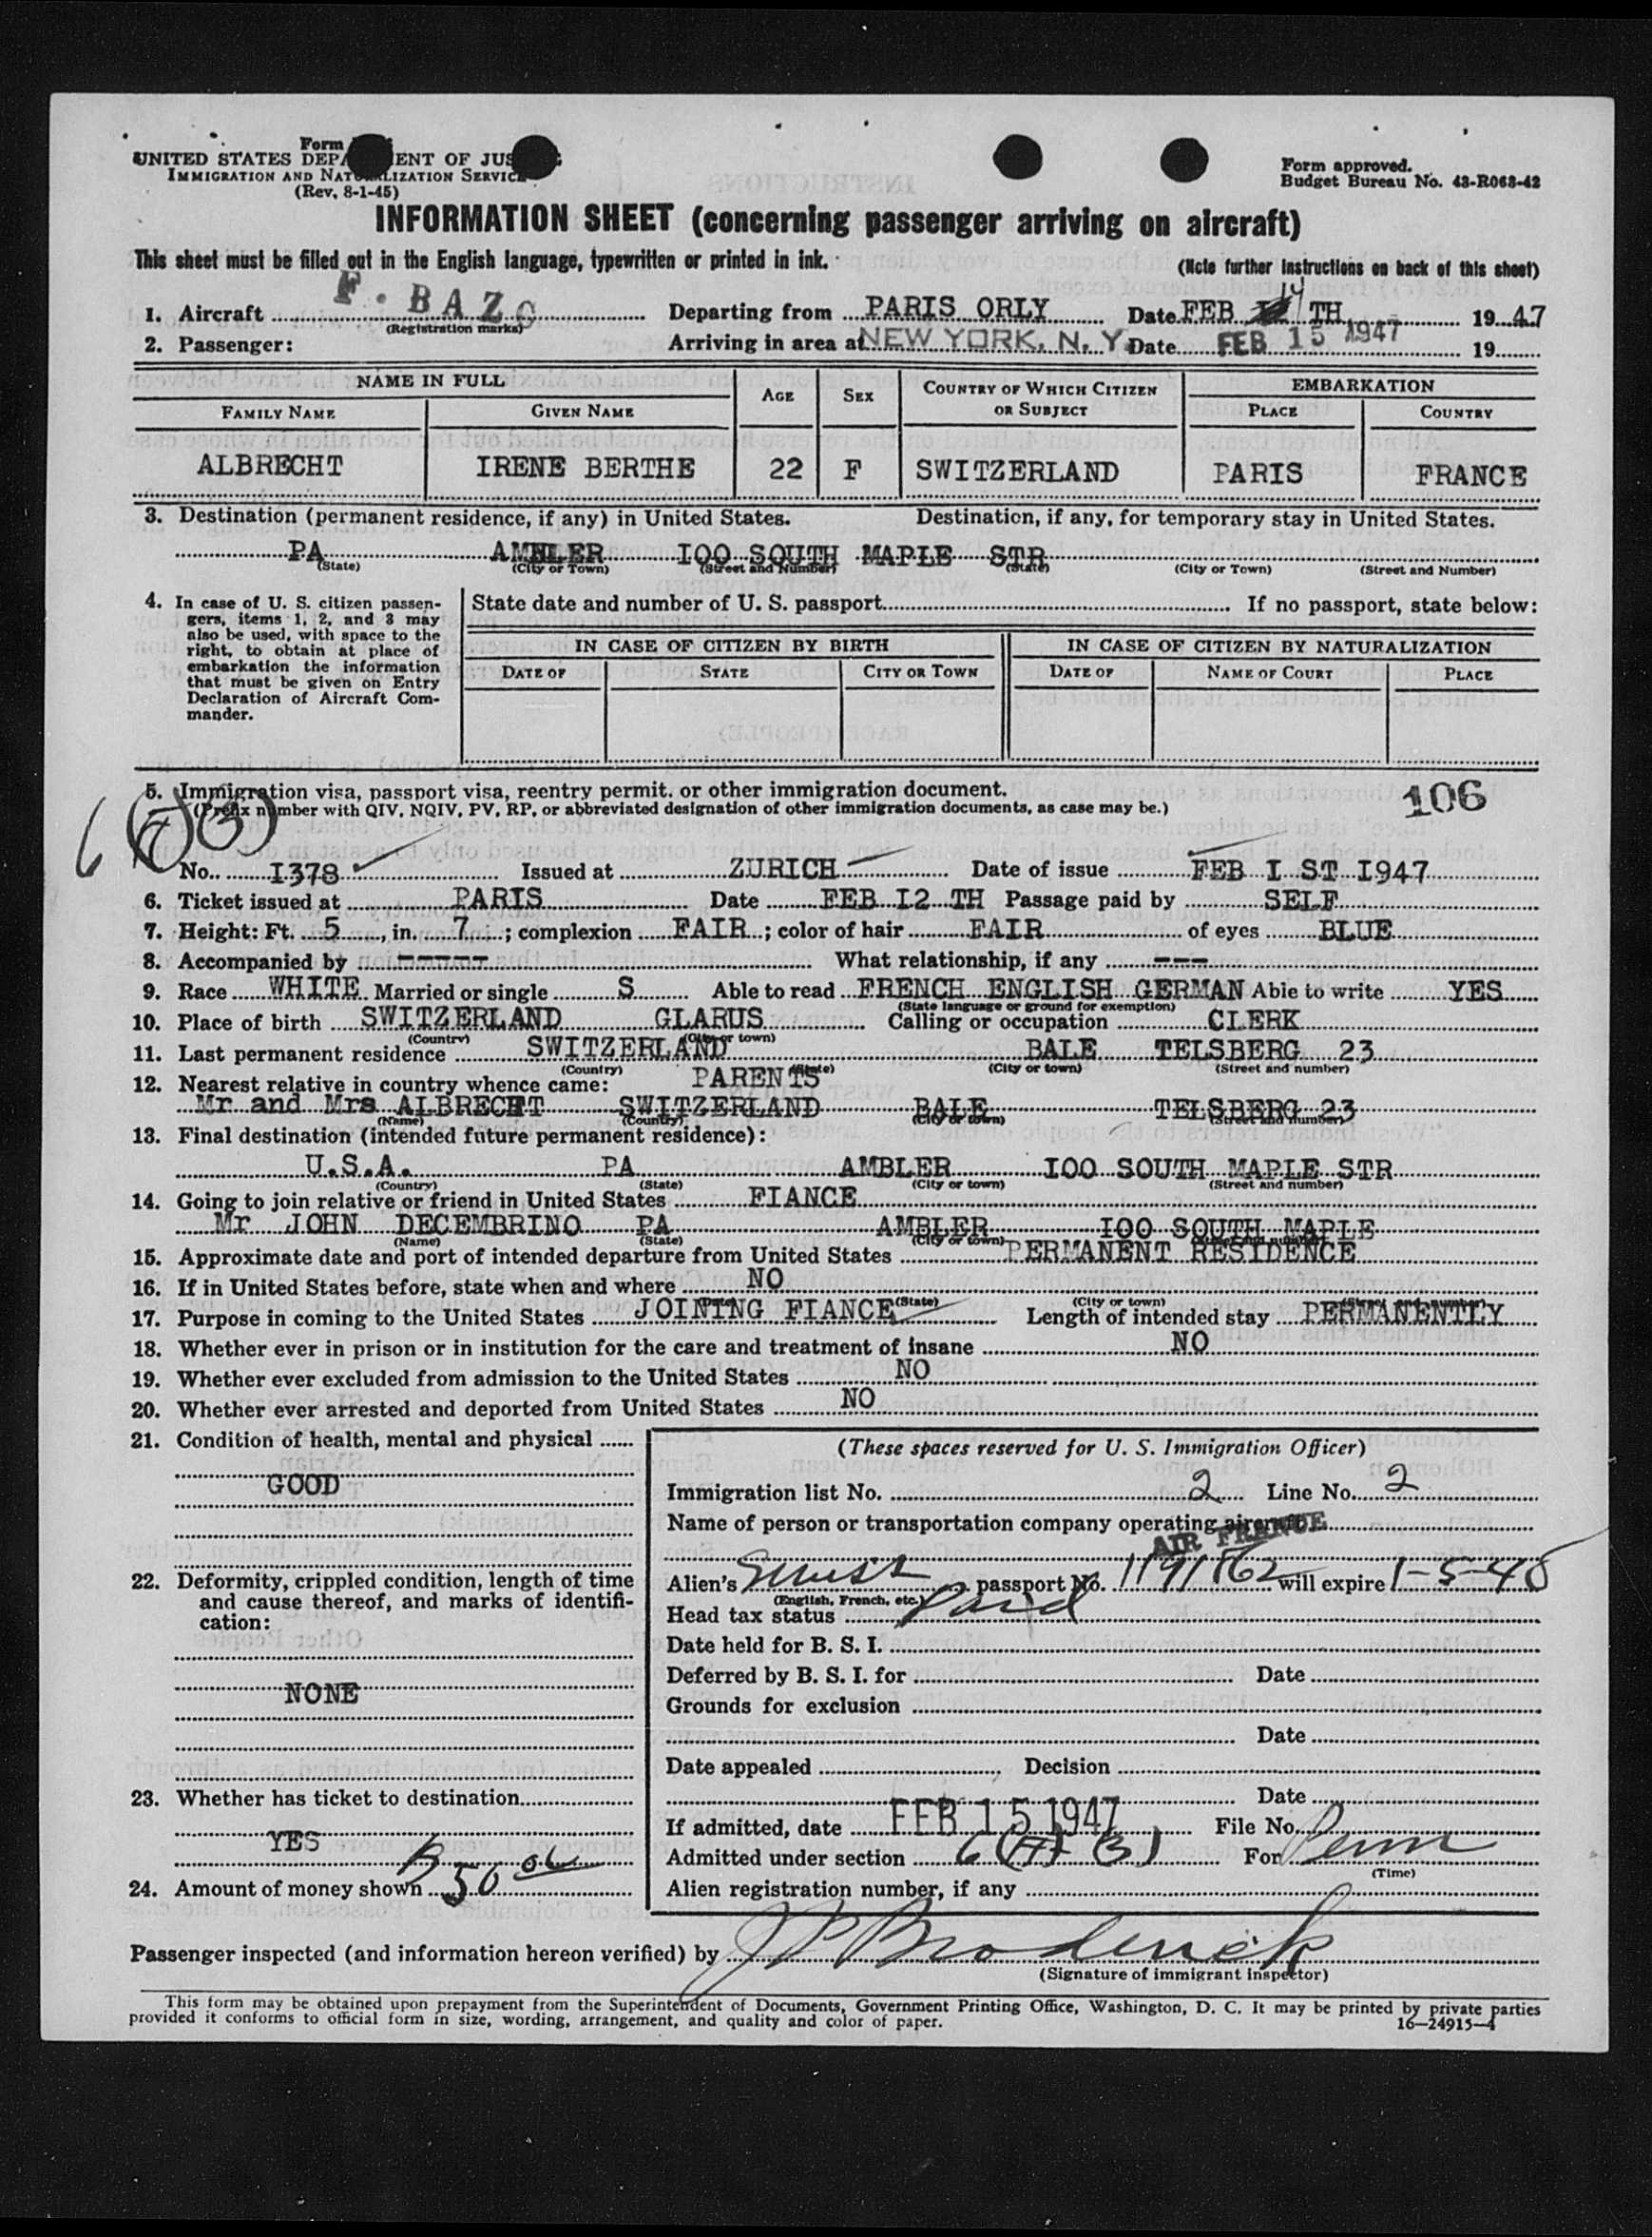 Form
UNITED STATES DEPA ENT OF JUS
IMMIGRATION AND NATURALIZATION SERVICE
(Rev. 8-1-45)
Form approved.
Budget Bureau No. 43-R063-42
INFORMATION SHEET (concerning passenger arriving on aircraft)
This sheet must be filled out in the English language, typewritten or printed in ink.
(Note further instructions on back of this sheet)
1. Aircraft F. BAZC Departing from PARIS ORLY Date FEB 14 TH 1947
(Registration marks)
2. Passenger: Arriving in area at NEW YORK, N. Y. Date FEB 15 1947 19
NAME IN FULL AGE SEX COUNTRY OF WHICH CITIZEN OR SUBJECT EMBARKATION
FAMILY NAME GIVEN NAME PLACE COUNTRY
ALBRECHT IRENE BERTHE 22 F SWITZERLAND PARIS FRANCE
3. Destination (permanent residence, if any) in United States. Destination, if any, for temporary stay in United States.
PA AMBLER I00 SOUTH MAPLE STR
(State) (City or Town) (Street and Number) (State) (City or Town) (Street and Number)
4. In case of U. S. citizen passen-
gers, items 1, 2, and 3 may
also be used, with space to the
right, to obtain at place of
embarkation the information
that must be given on Entry
Declaration of Aircraft Com-
mander.
State date and number of U. S. passport If no passport, state below:
IN CASE OF CITIZEN BY BIRTH IN CASE OF CITIZEN BY NATURALIZATION
DATE OF STATE CITY OR TOWN DATE OF NAME OF COURT PLACE
5. Immigration visa, passport visa, reentry permit, or other immigration document.
(Prefix number with QIV, NQIV, PV, RP, or abbreviated designation of other immigration documents, as case may be.)
106
6 (3)
No. I378 Issued at ZURICH Date of issue FEB I ST I947
6. Ticket issued at PARIS Date FEB I2 TH Passage paid by SELF
7. Height: Ft. 5, in. 7; complexion FAIR; color of hair FAIR of eyes BLUE
8. Accompanied by ----- What relationship, if any ---
9. Race WHITE Married or single S Able to read FRENCH ENGLISH GERMAN Able to write YES
(State language or ground for exemption)
10. Place of birth SWITZERLAND GLARUS Calling or occupation CLERK
(Country) (City or town)
11. Last permanent residence SWITZERLAND BALE TELSBERG 23
(Country) (State) (City or town) (Street and number)
12. Nearest relative in country whence came: PARENTS
Mr and Mrs ALBRECHT SWITZERLAND BALE TELSBERG 23
(Name) (Country) (City or town) (Street and number)
13. Final destination (intended future permanent residence):
U.S.A. PA AMBLER I00 SOUTH MAPLE STR
(Country) (State) (City or town) (Street and number)
14. Going to join relative or friend in United States FIANCE
Mr JOHN DECEMBRINO PA AMBLER I00 SOUTH MAPLE
(Name) (State) (City or town) (Street and number)
15. Approximate date and port of intended departure from United States PERMANENT RESIDENCE
16. If in United States before, state when and where NO
(State) (City or town)
17. Purpose in coming to the United States JOINTNG FIANCE Length of intended stay PERMANENTLY
18. Whether ever in prison or in institution for the care and treatment of insane NO
19. Whether ever excluded from admission to the United States NO
20. Whether ever arrested and deported from United States NO
21. Condition of health, mental and physical
GOOD
22. Deformity, crippled condition, length of time
and cause thereof, and marks of identifi-
cation:
NONE
23. Whether has ticket to destination
YES
24. Amount of money shown 50
(These spaces reserved for U. S. Immigration Officer)
Immigration list No. 2 Line No. 2
Name of person or transportation company operating aircraft
AIR FRANCE
Alien's Swiss passport No. 1191862 will expire 1-5-48
(English, French, etc.)
Head tax status Paid
Date held for B. S. I.
Deferred by B. S. I. for Date
Grounds for exclusion
Date
Date appealed Decision
Date
If admitted, date FEB 15 1947 File No.
Admitted under section 6 (A) (3) For Perm
(Time)
Alien registration number, if any
Passenger inspected (and information hereon verified) by J P Broderick
(Signature of immigrant inspector)
This form may be obtained upon prepayment from the Superintendent of Documents, Government Printing Office, Washington, D. C. It may be printed by private parties
provided it conforms to official form in size, wording, arrangement, and quality and color of paper.
16—24915-4